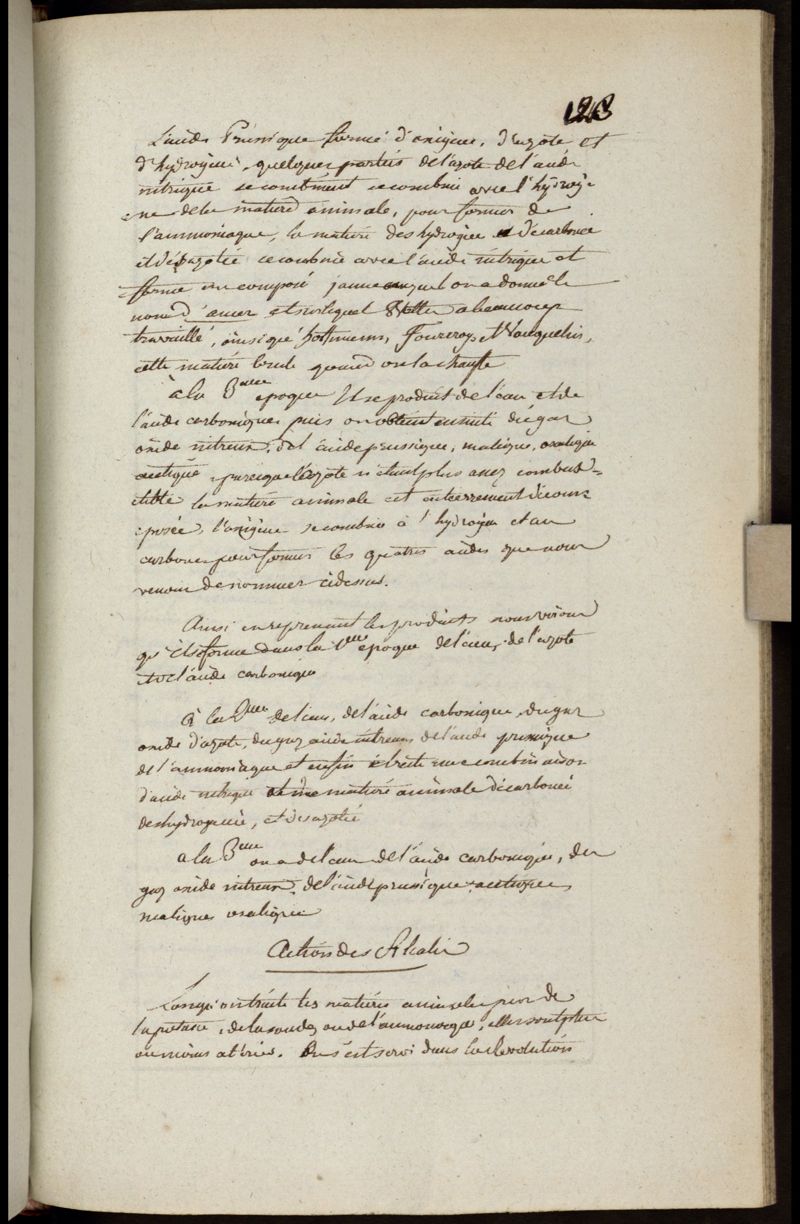 123
L'acide Prussique formé d'oxigene, d'azote et
d'hydrogene, quelques parties de l'azote de l'acide
nitrique se combine avec l'hydroge
ne de la matiere animale, pour former de
l'ammoniaque, la matiere deshydrogenee decarbonee
et desazotée se combine avec l'acide nitrique et
forme un composé jaune auquel on a donné le
nom d'amer et sur lequel Velter a beaucoup
travaillé, ainsi que hoffmenn, Fourcroy et Vauquelin,
cette matiere brule quand on la chauffe
à la 3eme epoque Il se produit de l'eau et de
l'acide carbonique puis on obtient ensuite du gaz
oxide nitreux, de l'acide prussique, malique, oxalique
acetique, puisque l'azote n'etant plus assez combus=
tible la matiere animale est entierrement decom=
posée, l'oxigene se combine à l'hydrogene et au
carbone pour former les quatres acides que nous
venons de nommer cidessus.
Ainsi en reprenant les produits nous voions
qu'il se forme dans la 1ere epoque de l'eau, de l'azote
et de l'acide carbonique
à la 2eme de l'eau, de l'acide carbonique, du gaz
oxide d'azote, du gaz acide nitreux, de l'acide prussique
de l'ammoniaque et enfin il reste une combinaison
d'acide nitrique et de matiere animale décarbonée
deshydrogenée, et desazotée
a la 3eme on a de l'eau de l'acide carbonique, du
gaz oxide nitreux, de l'acide prussique, acetique,
malique, oxalique
Action des Alkalis
Lorsqu'on traite les matieres animales par de
la potasse, de la soude, ou de l'ammoniaque, elles sont plus
ou moins alterées. On s'est servi dans la Revolution